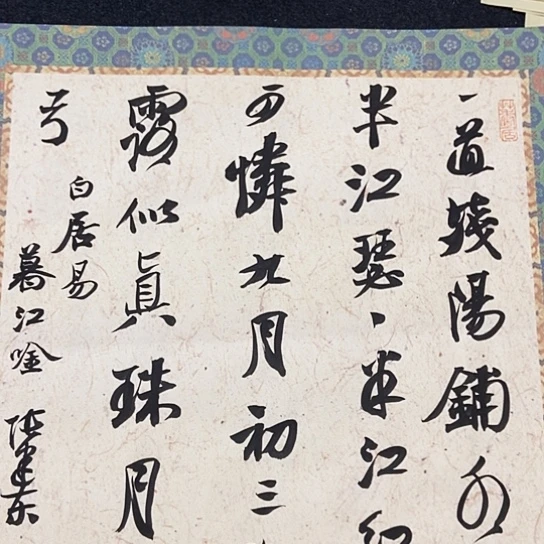 一道殘陽鋪水
半江瑟丶半江紅
可憐九月初三
露似真珠月
弓
白居易
暮江唫